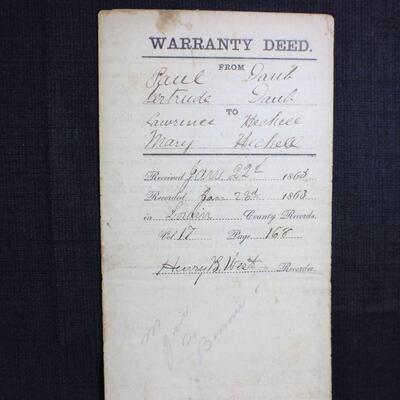 WARRANTY DEED.
FROM
Paul Daub
Gertrude Daub
TO
Lawrence Heckell
Mary Heckell
Received Jany 22d 1863
Recorded Jan 23d 1863
in Lorain County Records.
Vol. 17 Page 168
Henry B. West Recorder